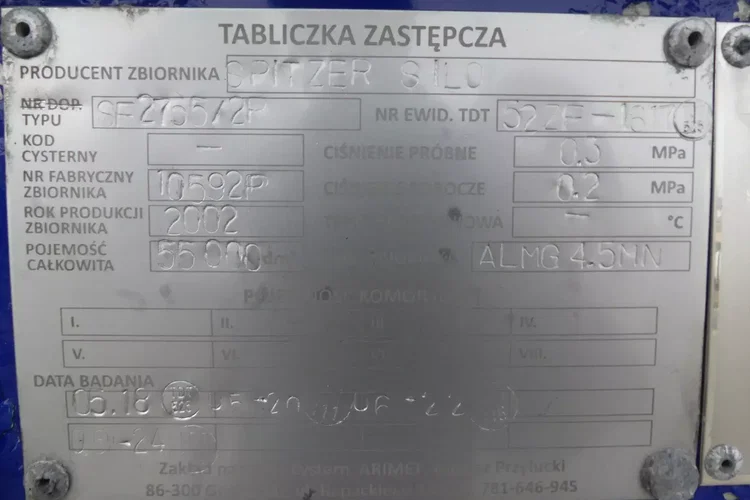 TABLICZKA ZASTĘPCZA
PRODUCENT ZBIORNIKA SPITZER SILO
NR DOP. TYPU SF2755/2P NR EWID. TDT 52ZF-1617
KOD CYSTERNY - CIŚNIENIE PRÓBNE 0.3 MPa
NR FABRYCZNY ZBIORNIKA 10592P CIŚNIENIE ROBOCZE 0.2 MPa
ROK PRODUKCJI ZBIORNIKA 2002 - °C
POJEMOŚĆ CAŁKOWITA 55000 ALMG 4.5MN
POJEMNOŚĆ KOMÓR
I. II. III. IV.
V. VI. VIII.
DATA BADANIA
05.18 05-20 06-22
-24
Zakład ARIMET Przyłucki
86-300 781-646-945